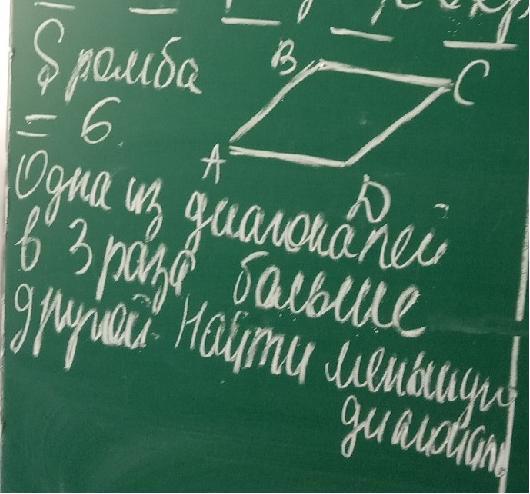 S ромба
= 6.
B
C
A
D
Одна из диагоналей
в 3 раза больше
другой. Найти меньшую
диагональ